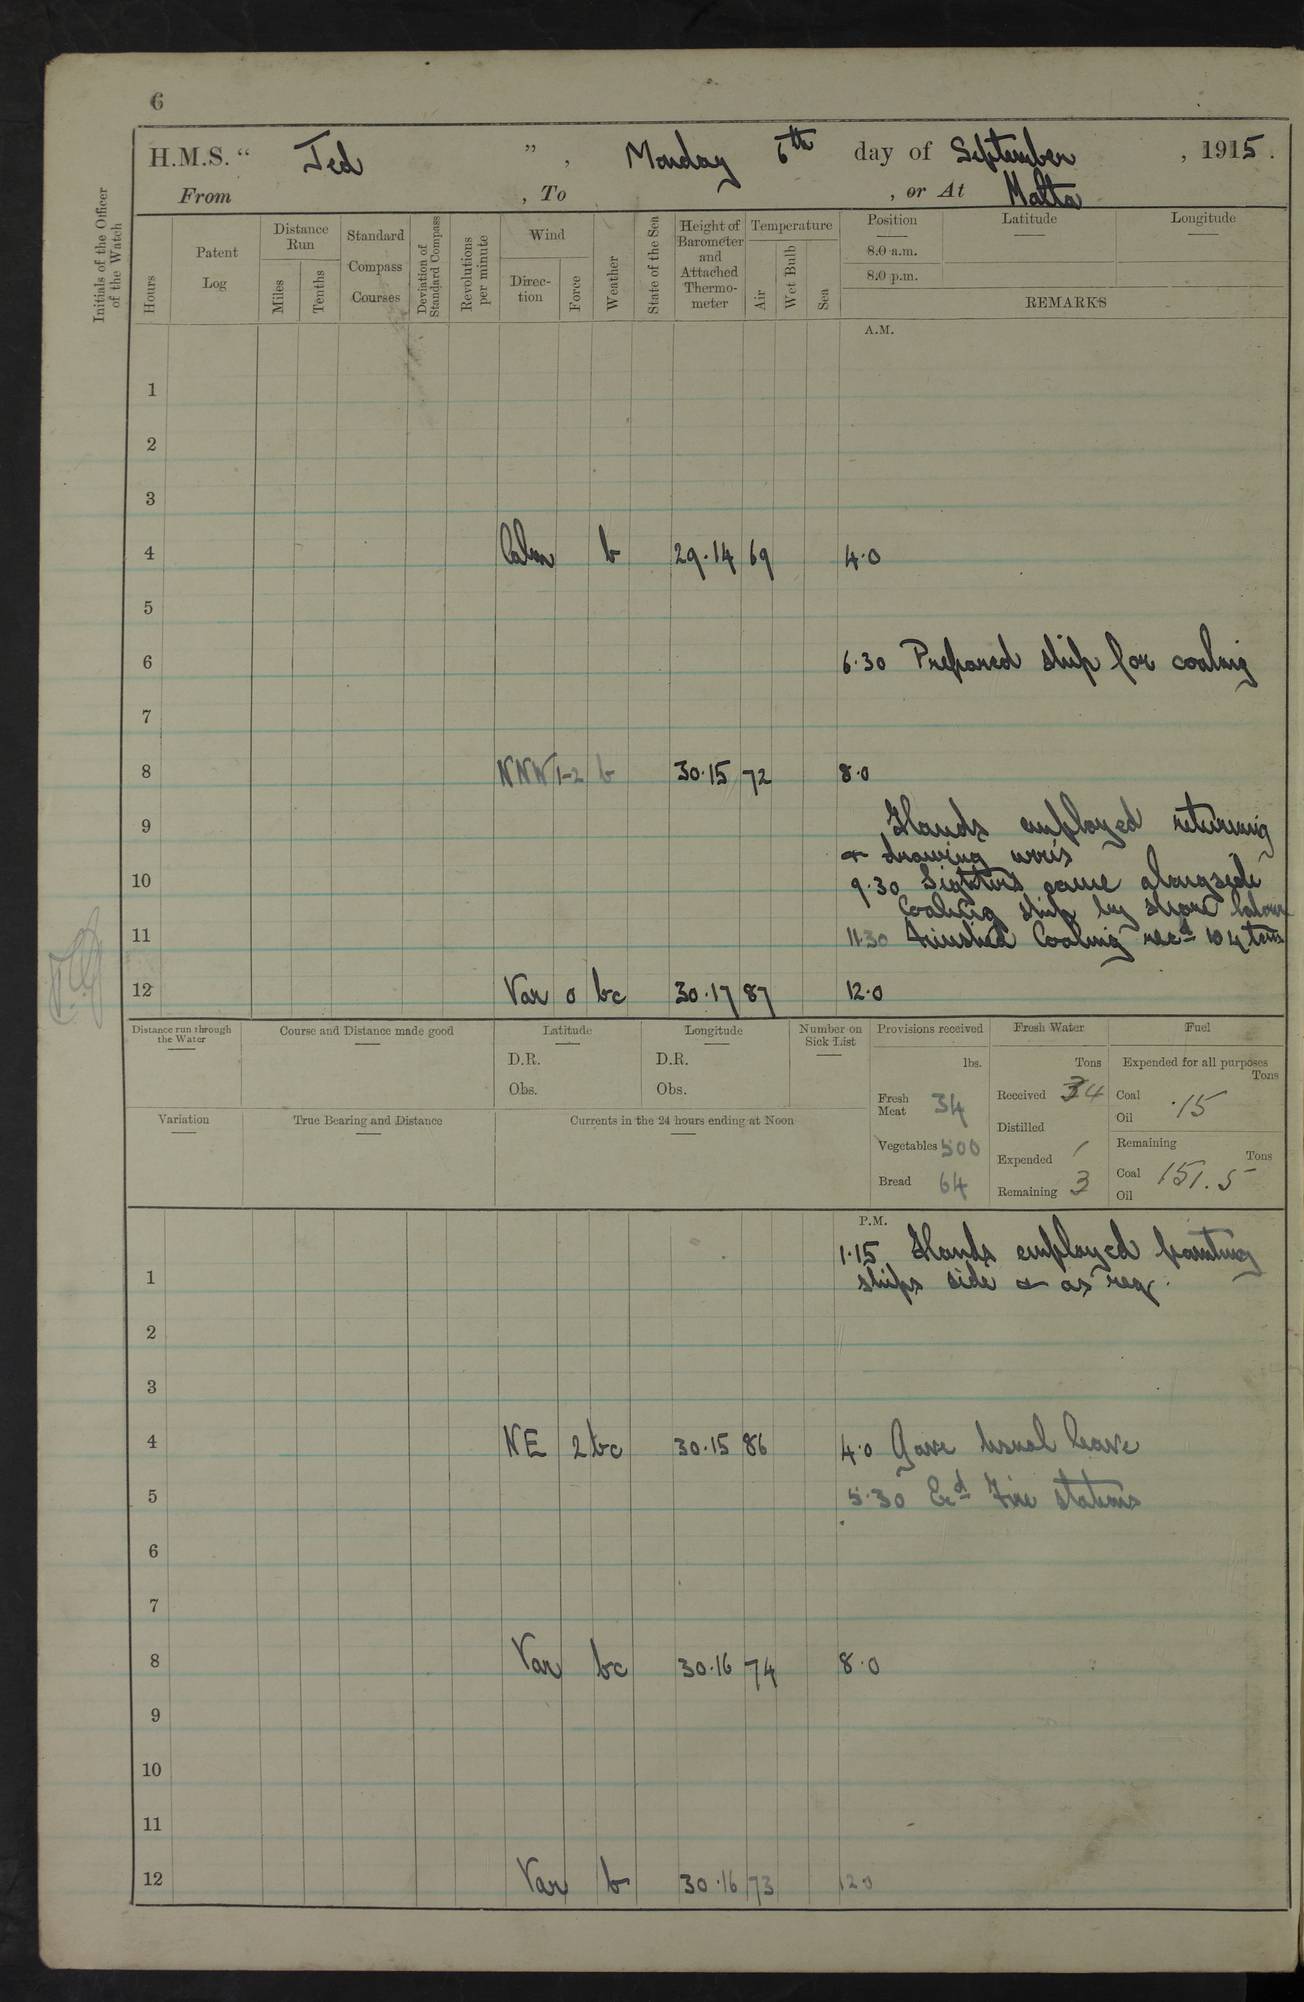 6
H.M.S. “ Jed ” , Monday 6th day of September , 1915 .
From , To , or At Malta
Initials of the Officer of the Watch
Hours
Patent Log
Distance Run
Miles
Tenths
Standard Compass Courses
Deviation of Standard Compass
Revolutions per minute
Wind
Direc-tion
Force
Weather
State of the Sea
Height of Barometer and Attached Thermo-meter
Temperature
Air
Wet Bulb
Sea
Position Latitude Longitude
8.0 a.m.
8.0 p.m.
REMARKS
A.M.
1
2
3
4 Calm b 29.14 69 4.0
5
6 6.30 Prepared ship for coaling
7
8 NNW 1-2 b 30.15 72 8.0
9 Hands employed returning
& drawing
10 9.30 Lighters came alongside
Coaling ship by shore labour
11 11.30 Finished Coaling recd 104 tons
12 Var 0 bc 30.17 87 12.0
Distance run through the Water
Course and Distance made good
Latitude
D.R.
Obs.
Longitude
D.R.
Obs.
Number on Sick List
Provisions received
lbs.
Fresh Meat 34
Vegetables 500
Bread 64
Fresh Water
Tons
Received
Distilled
Expended 1
Remaining 3
Fuel
Expended for all purposes
Tons
Coal .15
Oil
Remaining
Tons
Coal 151.5
Oil
Variation
True Bearing and Distance
Currents in the 24 hours ending at Noon
P.M.
1.15 Hands employed painting
1 ships side & as req.
2
3
4 NE 2 bc 30.15 86 4.0 Gave usual leave
5 5.30 Exd Fire stations
6
7
8 Var bc 30.16 74 8.0
9
10
11
12 Var b 30.16 73 12.0